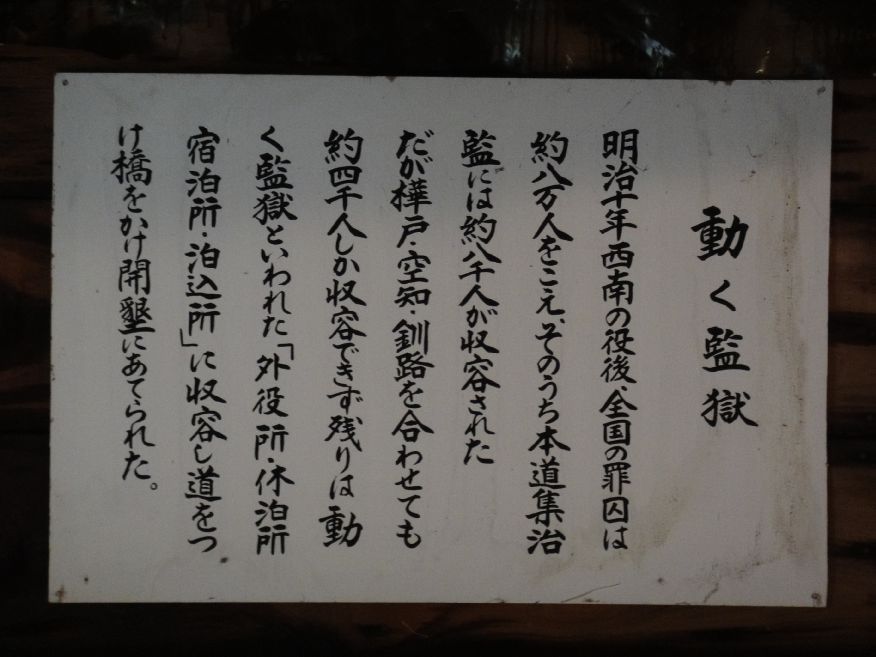 動く監獄
明治十年西南の役後、全国の罪囚は
約八万人をこえ、そのうち本道集治
監には約八千人が収容された
だが樺戸・空知・釧路を合わせても
約四千人しか収容できず残りは動
く監獄といわれた「外役所・休泊所
宿泊所・泊込所」に収容し道をつ
け橋をかけ開墾にあてられた。